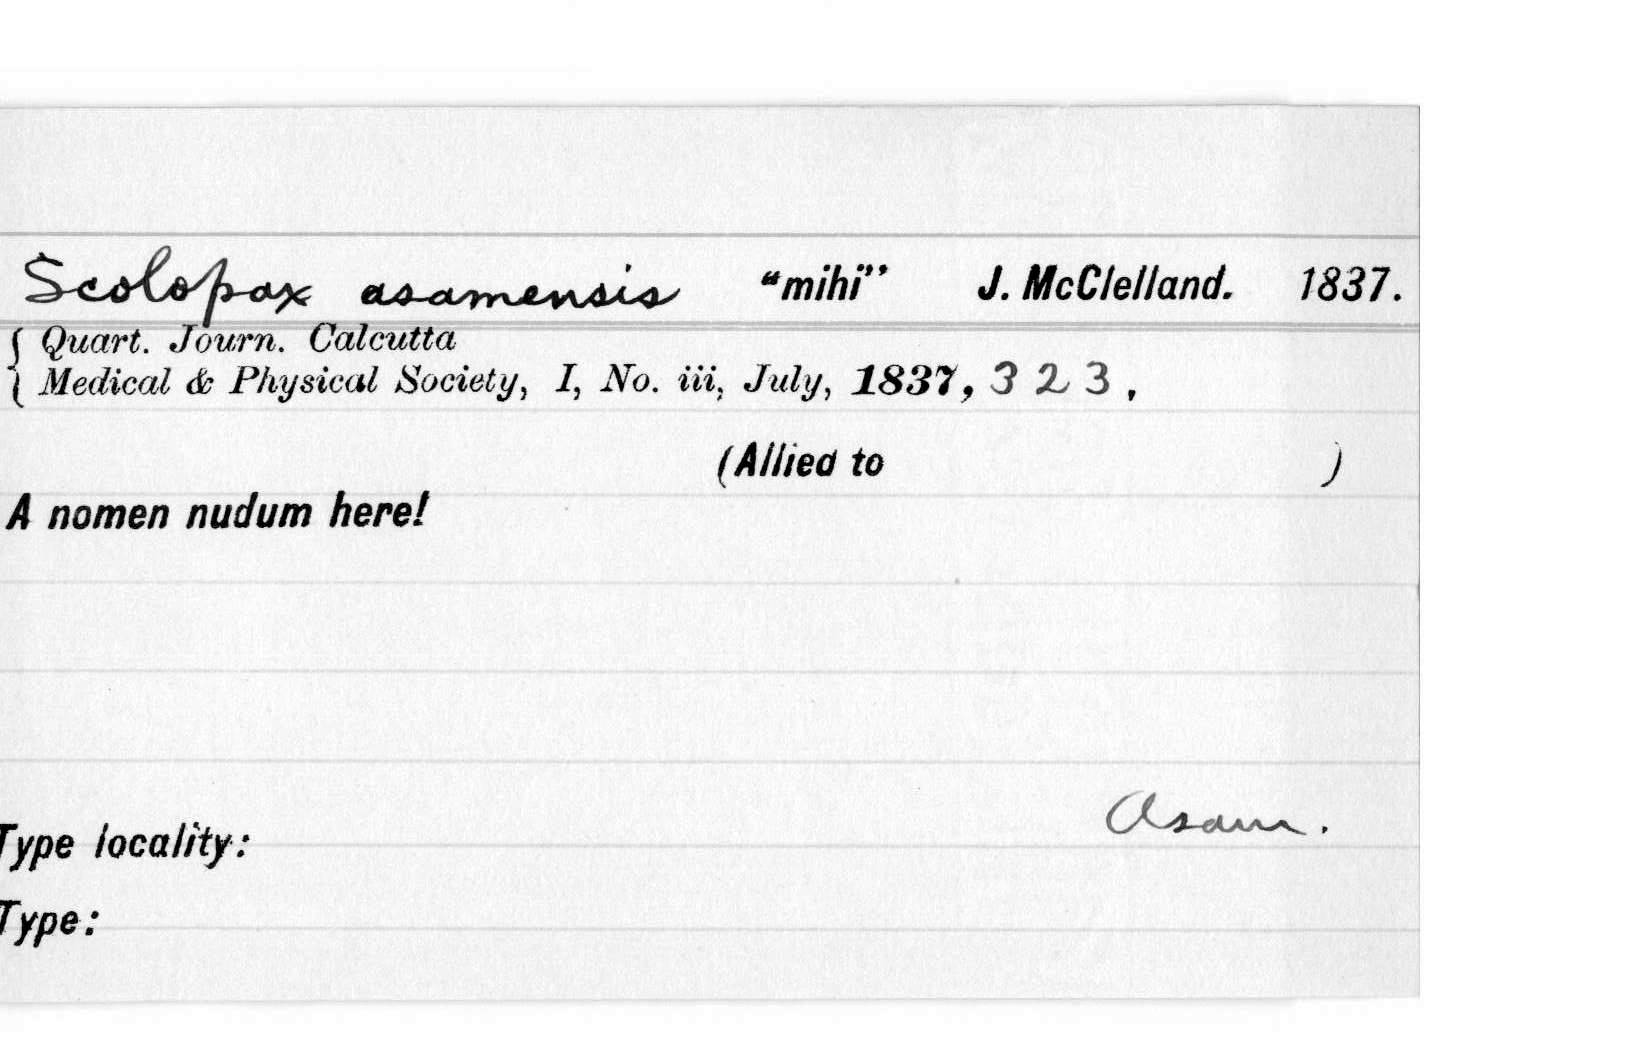 Scolopax asamensis "mihi" J. McClelland. 1837.
Quart. Journ. Calcutta
Medical & Physical Society, I, No. iii, July, 1837, 323.
(Allied to )
A nomen nudum here!
Asam.
Type locality:
Type: